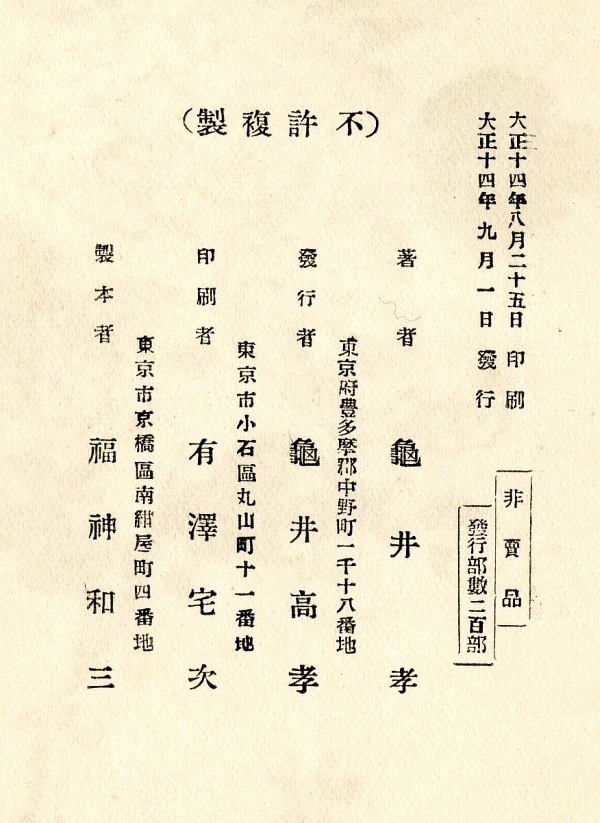 大正十四年八月二十五日 印刷
大正十四年九月一日 發行
非賣品
發行部數二百部
(不許複製)
著者 龜井孝
東京府豐多摩郡中野町一千十八番地
發行者 龜井高孝
東京市小石區丸山町十一番地
印刷者 有澤宅次
東京市京橋區南紺屋町四番地
製本者 福神和三